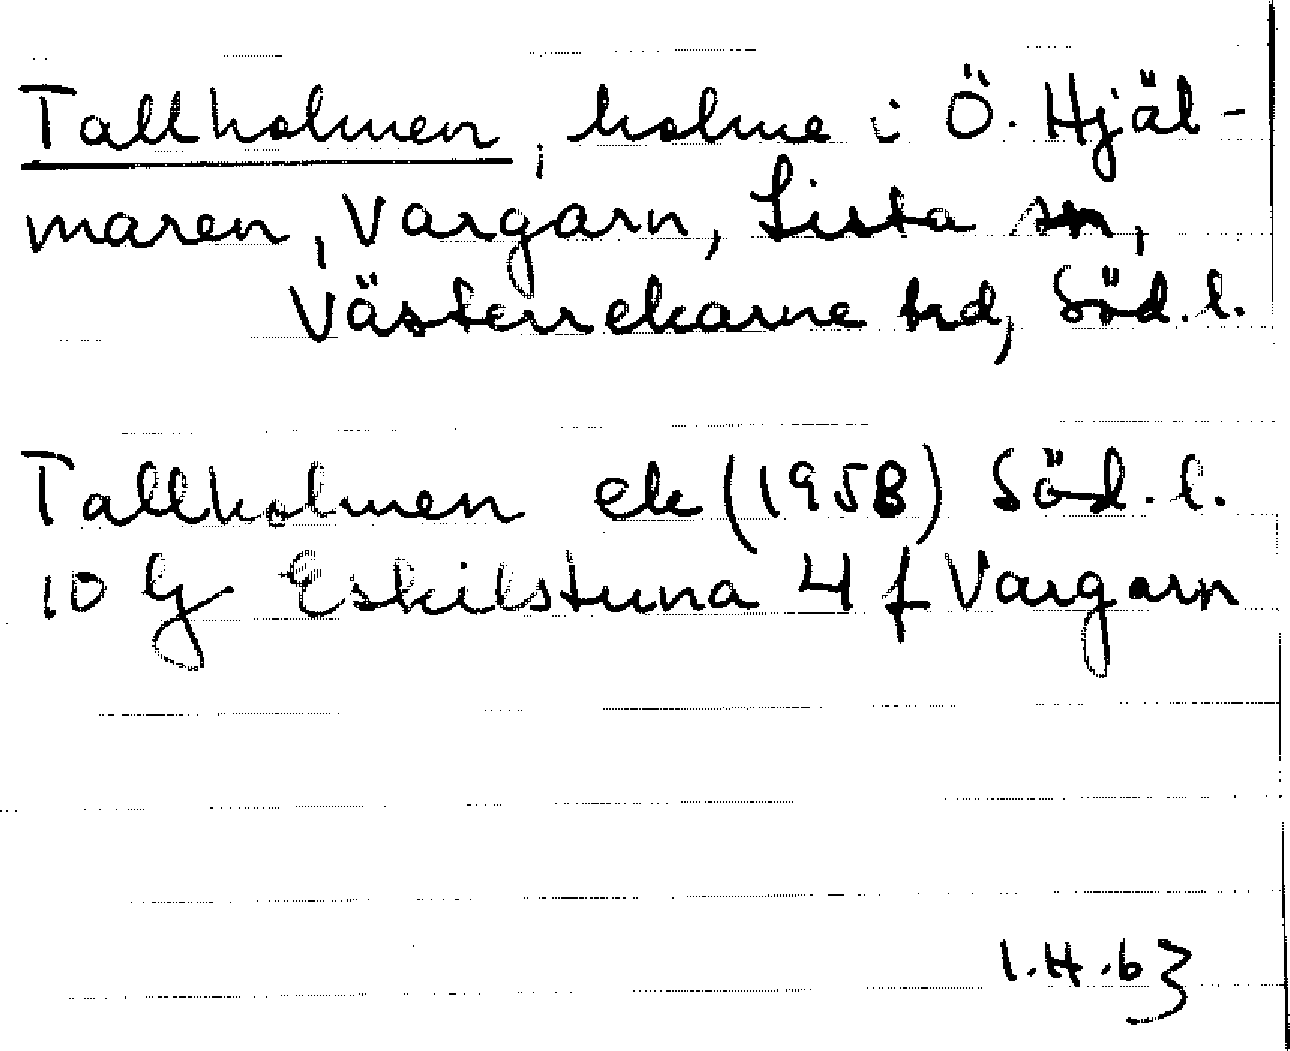 Tallholmen, holme i Ö. Hjäl-
maren, Vargarn, Lista sn,
Västerrekarne hd, Söd. l.
Tallholmen ek (1958) Söd. l.
10 G Eskilstuna 4 f Vargarn
I.H.63